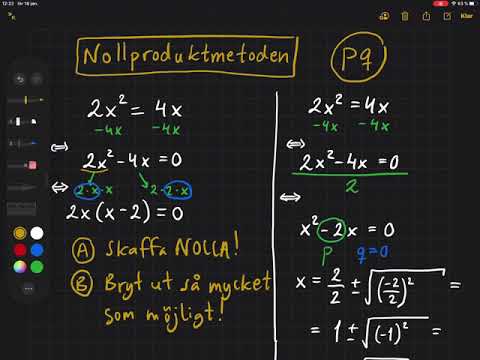 12:23 lör 16 jan.
93 %
Klar
Nollproduktmetoden
pq
2x² = 4x
-4x -4x
⇔ 2x² - 4x = 0
⇔ 2·x·x 2·2·x
2x(x-2) = 0
A Skaffa NOLLA!
B Bryt ut så mycket
som möjligt!
2x² = 4x
-4x -4x
⇔ 2x² - 4x = 0
2
⇔
x² - 2x = 0
p q=0
x = 2/2 ± √(-2/2)² =
= 1 ± √(-1)² =